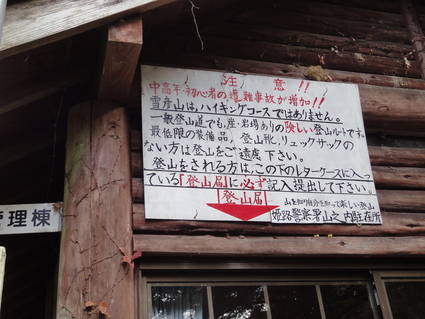 注意!!
中高年・初心者の遭難事故が増加!!
雪彦山は、ハイキングコースではありません。
一般登山道でも、崖・岩場ありの険しい登山ルートです。
最低限の装備品、登山靴、リュックサックの
ない方は登山をご遠慮下さい。
登山をされる方は、この下のレターケースに入っ
ている「登山届」に必ず記入提出して下さい。
登山届
山を知り自分を知って楽しい登山
姫路警察署山之内駐在所
管理棟